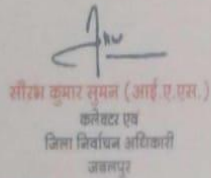 सौरभ कुमार सुमन (आई.ए.एस.)
कलेक्टर एवं
जिला निर्वाचन अधिकारी
जबलपुर